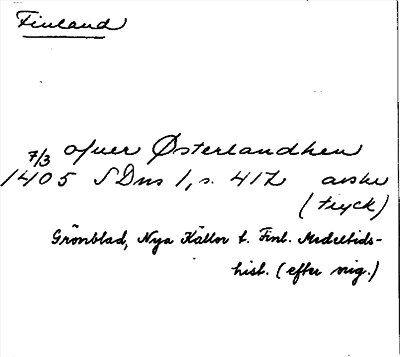 Finland
ofuer Østerlandhen
7/3
1405 SDns 1, s. 412 avskr
(tryck)
Grönblad, Nya Källor t. Finl. Medeltids-
hist. (efter orig.)